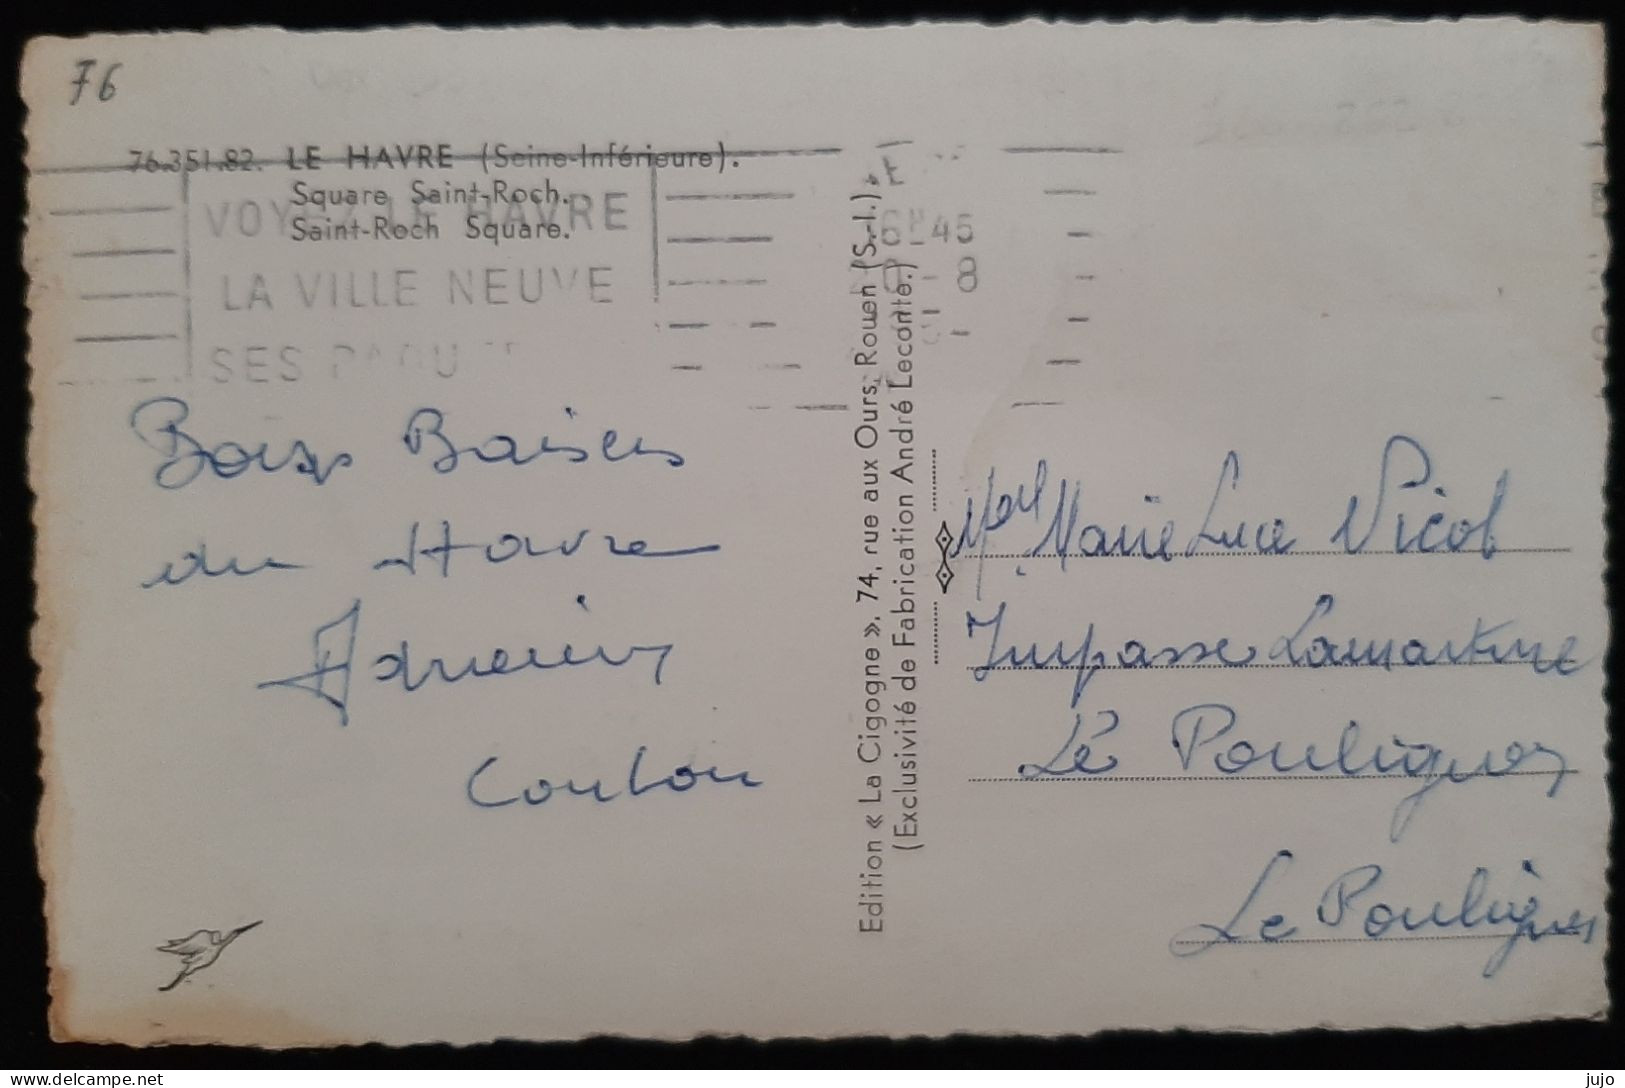 76
76.351.82. LE HAVRE (Seine-Inférieure).
Square Saint-Roch.
Saint-Roch Square.
VOYEZ LE HAVRE
LA VILLE NEUVE
SES PAQU
6H45
8
Bons Baisers
du Havre
Coulon
Edition « La Cigogne », 74, rue aux Ours, Rouen (S.-I.).
(Exclusivité de Fabrication André Leconte.)
Melle Marie Luce Nicol
Impasse Lamartine
Le Pouliguen
Le Pouliguen
jujo